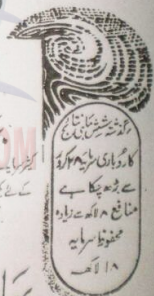 گذشتہ ششماہی نتائج
کاروباری سرمایہ ۲۸ کروڑ
سے بڑھ چکا ہے
منافع ۸ لاکھ سے زیادہ
محفوظ سرمایہ
۱۸ لاکھ